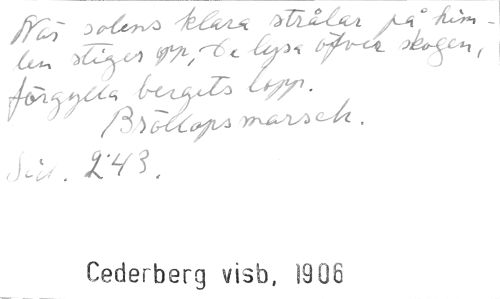 När solens klara strålar på him-
len stiger opp, de lysa öfver skogen,
förgylla bergets topp.
Bröllopsmarsch.
Sid. 243.
Cederberg visb, 1906